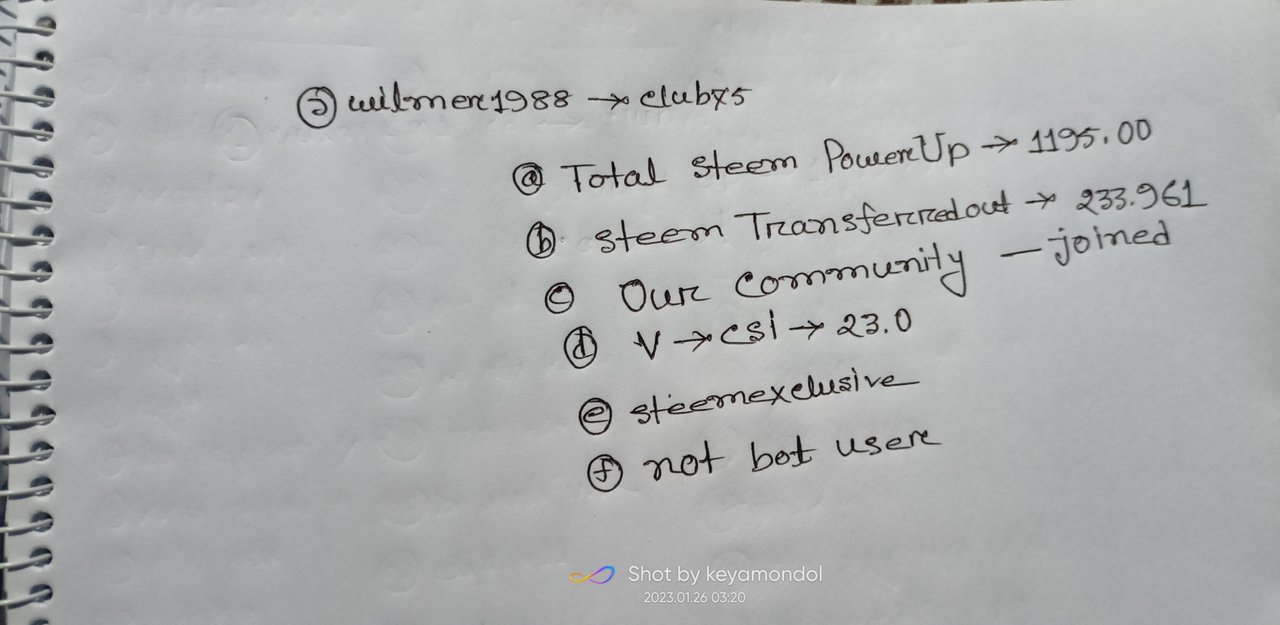 ③ wilmer1988 → club75
ⓐ Total Steem PowerUp → 1195.00
ⓑ Steem Transferredout → 233.961
ⓒ Our Community — joined
ⓓ V → CSI → 23.0
ⓔ steemexclusive
ⓕ not bot user
Shot by keyamondol
2023.01.26 03:20